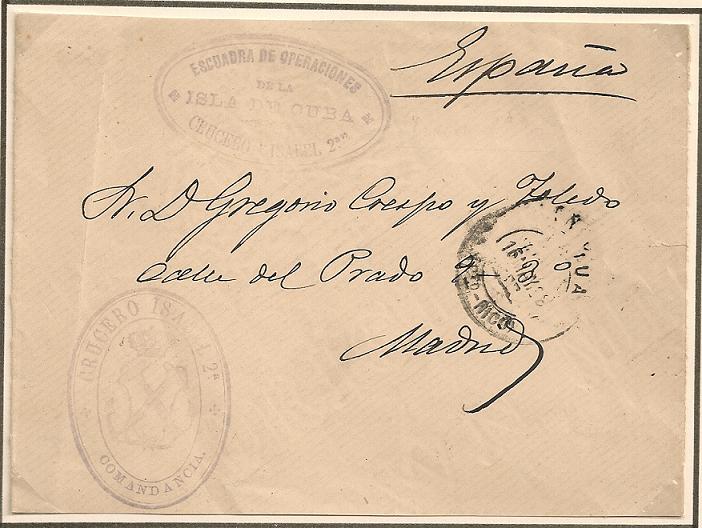 España
ESCUADRA DE OPERACIONES
DE LA
ISLA DE CUBA
CRUCERO ISABEL 2ª
Sr. D Gregorio Crespo y Toledo
Calle del Prado
Madrid
-RICO
CRUCERO ISABEL 2ª
COMANDANCIA.